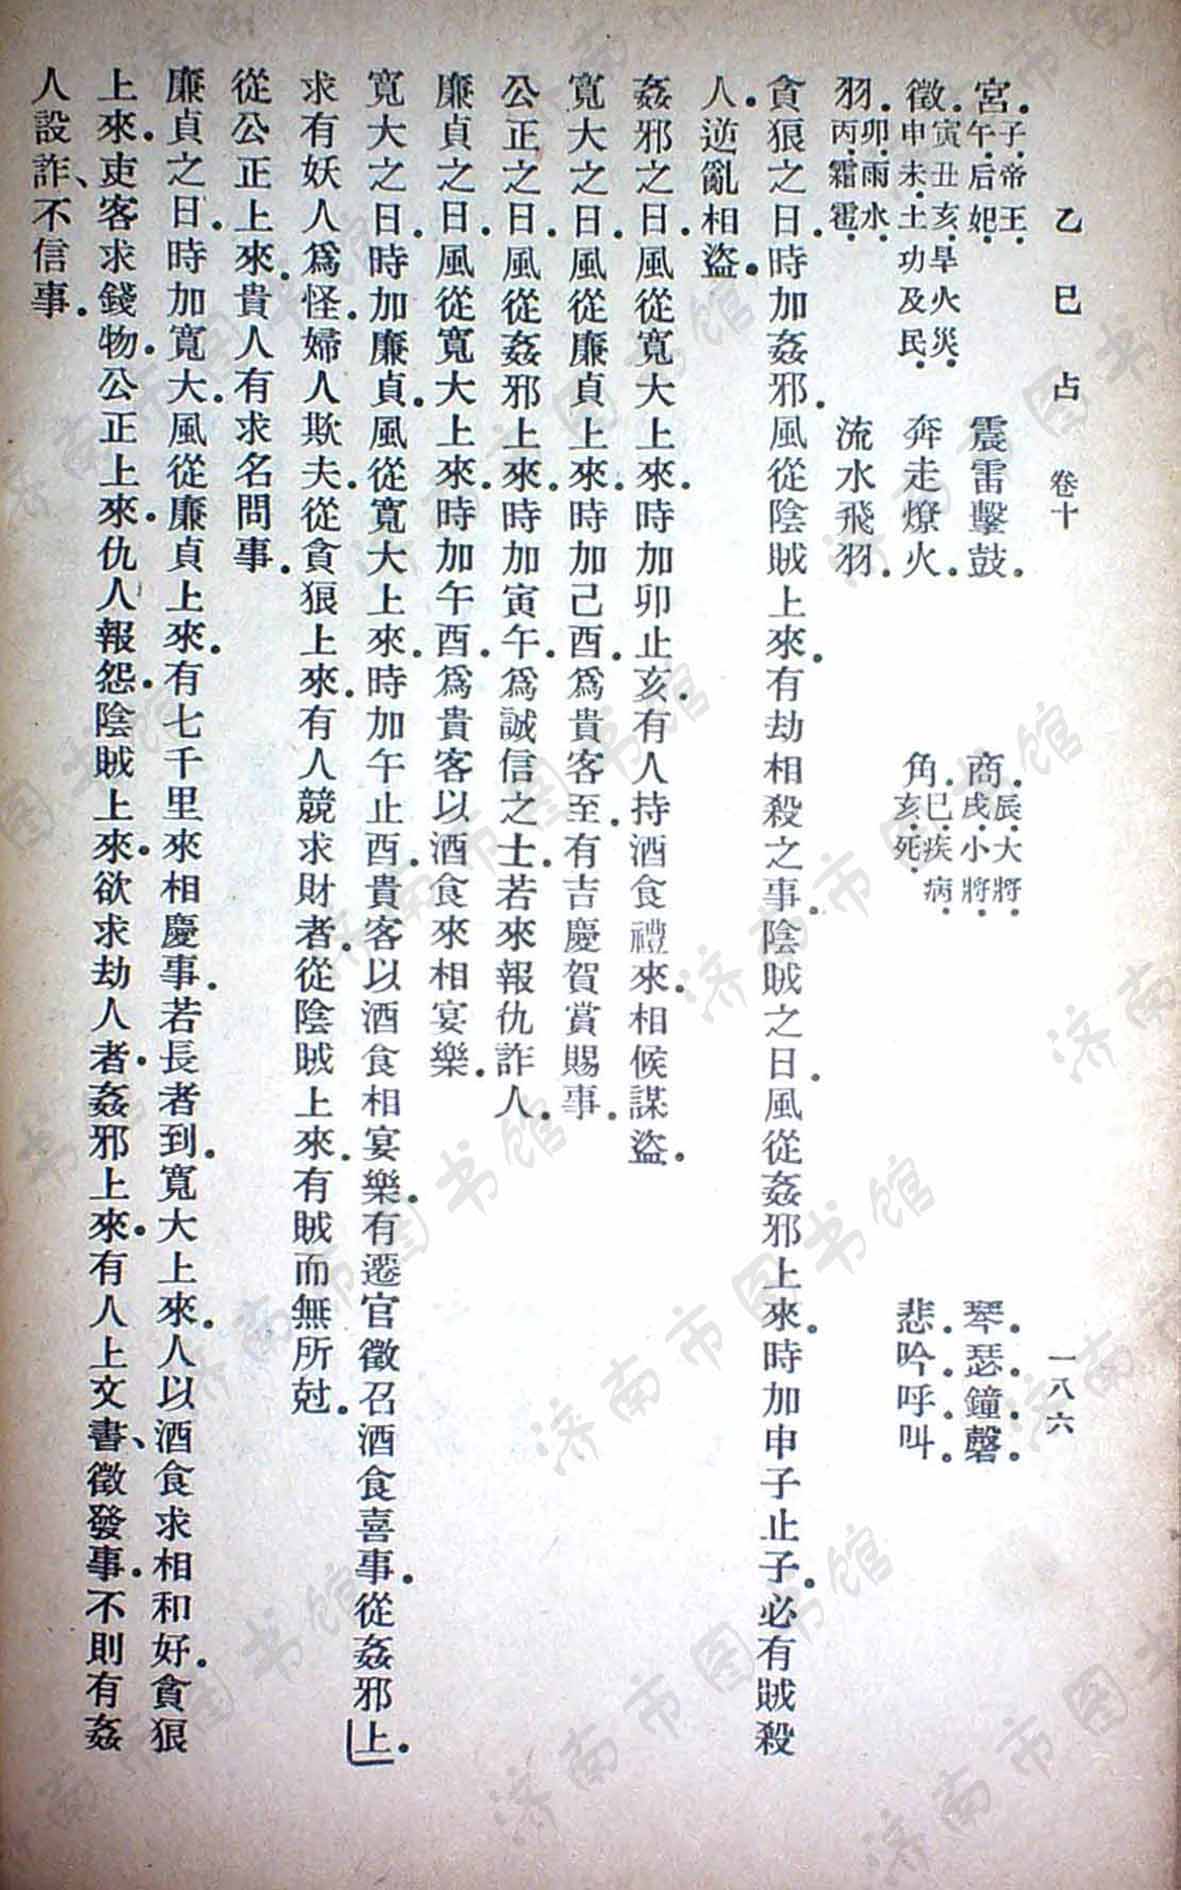 乙巳占 卷十 一八六
宮。子。帝王。午。后妃。 震雷擊鼓。 商。辰。大將。戌。小將。 琴。瑟。鐘。磬。
徵。寅丑亥。旱火災。申未。土功及民。 奔走燎火。 角。巳。疾病。亥。死。 悲。吟。呼。叫。
羽。卯。雨水。丙。霜雹。 流水飛羽。
貪狼之日。時加姦邪。風從陰賊上來。有劫相殺之事。陰賊之日。風從姦邪上來。時加申子止子。必有賊殺
人。逆亂相盜。
姦邪之日。風從寬大上來。時加卯止亥。有人持酒食禮來。相候謀盜。
寬大之日。風從廉貞上來。時加己酉。爲貴客至。有吉慶賀賞賜事。
公正之日。風從姦邪上來。時加寅午。爲誠信之士。若來報仇詐人。
廉貞之日。風從寬大上來。時加午酉。爲貴客以酒食來相宴樂。
寬大之日。時加廉貞。風從寬大上來。時加午止酉。貴客以酒食相宴樂。有遷官徵召酒食喜事。從姦邪上。
求有妖人爲怪。婦人欺夫。從貪狼上來。有人競求財者。從陰賊上來。有賊而無所尅。
從公正上來。貴人有求名問事。
廉貞之日。時加寬大。風從廉貞上來。有七千里來相慶事。若長者到。寬大上來。人以酒食求相和好。貪狼
上來。吏客求錢物。公正上來。仇人報怨。陰賊上來。欲求劫人者。姦邪上來。有人上文書、徵發事。不則有姦
人設詐、不信事。
济南市图书馆